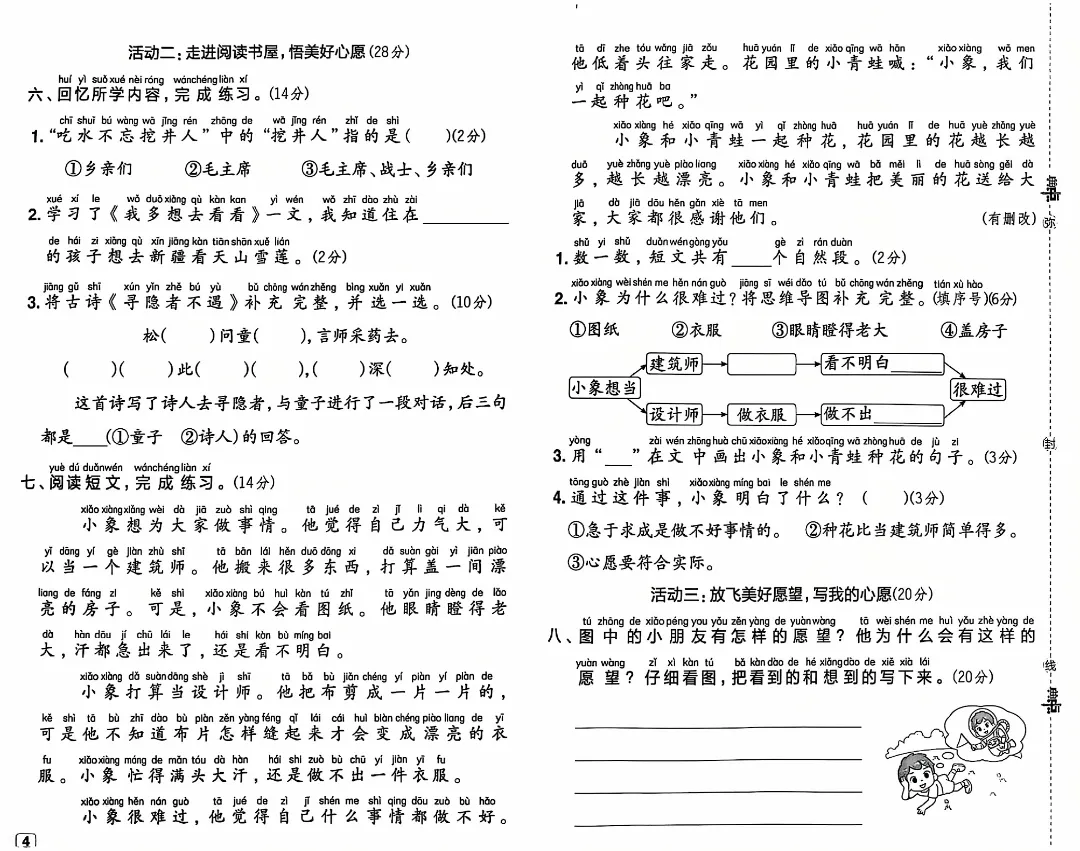 活动二：走进阅读书屋，悟美好心愿(28分)
huí yì suǒ xué nèi róng wán chéng liàn xí
六、回忆所学内容，完成练习。(14分)
chī shuǐ bú wàng wā jǐng rén zhōng de wā jǐng rén zhǐ de shì
1. “吃水不忘挖井人”中的“挖井人”指的是( )(2分)
①乡亲们 ②毛主席 ③毛主席、战士、乡亲们
xué xí le wǒ duō xiǎng qù kàn kan yì wén wǒ zhī dào zhù zài
2. 学习了《我多想去看看》一文，我知道住在____
de hái zi xiǎng qù xīn jiāng kàn tiān shān xuě lián
的孩子想去新疆看天山雪莲。(2分)
jiāng gǔ shī xún yǐn zhě bú yù bǔ chōng wán zhěng bìng xuǎn yi xuǎn
3. 将古诗《寻隐者不遇》补充完整，并选一选。(10分)
松( )问童( )，言师采药去。
( )( )此( )( )，( )深( )知处。
这首诗写了诗人去寻隐者，与童子进行了一段对话，后三句
都是____(①童子 ②诗人)的回答。
yuè dú duǎn wén wán chéng liàn xí
七、阅读短文，完成练习。(14分)
xiǎo xiàng xiǎng wèi dà jiā zuò shì qing tā jué de zì jǐ lì qi dà kě
小象想为大家做事情。他觉得自己力气大，可
yǐ dāng yí gè jiàn zhù shī tā bān lái hěn duō dōng xi dǎ suàn gài yì jiān piào
以当一个建筑师。他搬来很多东西，打算盖一间漂
liang de fáng zi kě shì xiǎo xiàng bú huì kàn tú zhǐ tā yǎn jing dèng de lǎo
亮的房子。可是，小象不会看图纸。他眼睛瞪得老
dà hàn dōu jí chū lái le hái shi kàn bù míng bai
大，汗都急出来了，还是看不明白。
xiǎo xiàng dǎ suàn dāng shè jì shī tā bǎ bù jiǎn chéng yí piàn yí piàn de
小象打算当设计师。他把布剪成一片一片的，
kě shì tā bù zhī dào bù piàn zěn yàng féng qǐ lái cái huì biàn chéng piào liang de yī
可是他不知道布片怎样缝起来才会变成漂亮的衣
fu xiǎo xiàng máng de mǎn tóu dà hàn hái shi zuò bù chū yí jiàn yī fu
服。小象忙得满头大汗，还是做不出一件衣服。
xiǎo xiàng hěn nán guò tā jué de zì jǐ shén me shì qing dōu zuò bù hǎo
小象很难过，他觉得自己什么事情都做不好。
4
tā dī zhe tóu wǎng jiā zǒu huā yuán lǐ de xiǎo qīng wā hǎn xiǎo xiàng wǒ men
他低着头往家走。花园里的小青蛙喊：“小象，我们
yì qǐ zhòng huā ba
一起种花吧。”
xiǎo xiàng hé xiǎo qīng wā yì qǐ zhòng huā huā yuán lǐ de huā yuè zhǎng yuè
小象和小青蛙一起种花，花园里的花越长越
duō yuè zhǎng yuè piào liang xiǎo xiàng hé xiǎo qīng wā bǎ měi lì de huā sòng gěi dà
多，越长越漂亮。小象和小青蛙把美丽的花送给大
jiā dà jiā dōu hěn gǎn xiè tā men
家，大家都很感谢他们。 (有删改)
shǔ yi shǔ duǎn wén gòng yǒu gè zì rán duàn
1. 数一数，短文共有____个自然段。(2分)
xiǎo xiàng wèi shén me hěn nán guò jiāng sī wéi dǎo tú bǔ chōng wán zhěng tián xù hào
2. 小象为什么很难过？将思维导图补充完整。(填序号)(6分)
①图纸 ②衣服 ③眼睛瞪得老大 ④盖房子
建筑师 看不明白____
小象想当 很难过
设计师 做衣服 做不出____
yòng zài wén zhōng huà chū xiǎo xiàng hé xiǎo qīng wā zhòng huā de jù zi
3. 用“___”在文中画出小象和小青蛙种花的句子。(3分)
tōng guò zhè jiàn shì xiǎo xiàng míng bai le shén me
4. 通过这件事，小象明白了什么？( )(3分)
①急于求成是做不好事情的。 ②种花比当建筑师简单得多。
③心愿要符合实际。
活动三：放飞美好愿望，写我的心愿(20分)
tú zhōng de xiǎo péng yǒu yǒu zěn yàng de yuàn wàng tā wèi shén me huì yǒu zhè yàng de
八、图中的小朋友有怎样的愿望？他为什么会有这样的
yuàn wàng zǐ xì kàn tú bǎ kàn dào de hé xiǎng dào de xiě xià lái
愿望？仔细看图，把看到的和想到的写下来。(20分)
弥
封
线